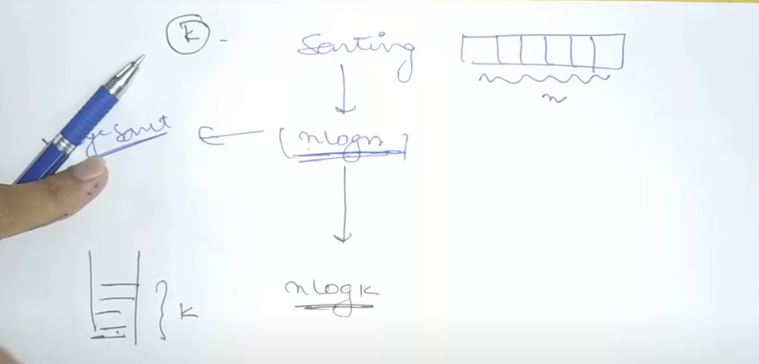 K - Sorting
n
Sort [nlogn]
nlogk
K